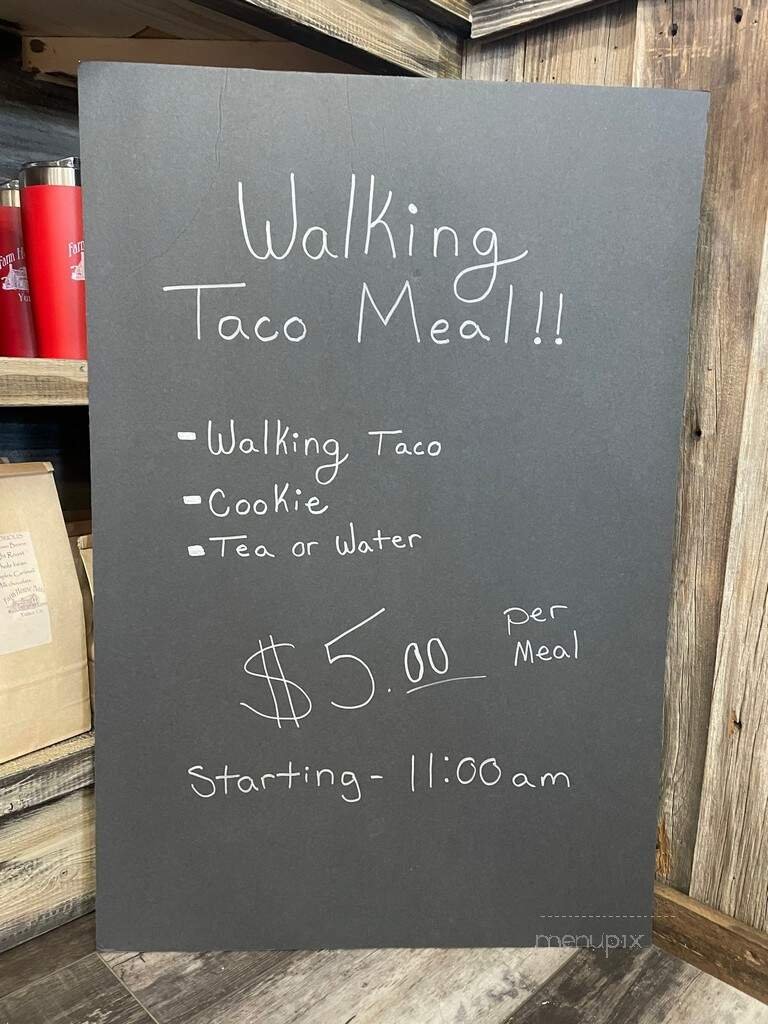 Walking
Taco Meal!!
- Walking Taco
- Cookie
- Tea or Water
$5.00 per
Meal
Starting - 11:00 am
Farm H
Farm
menupix